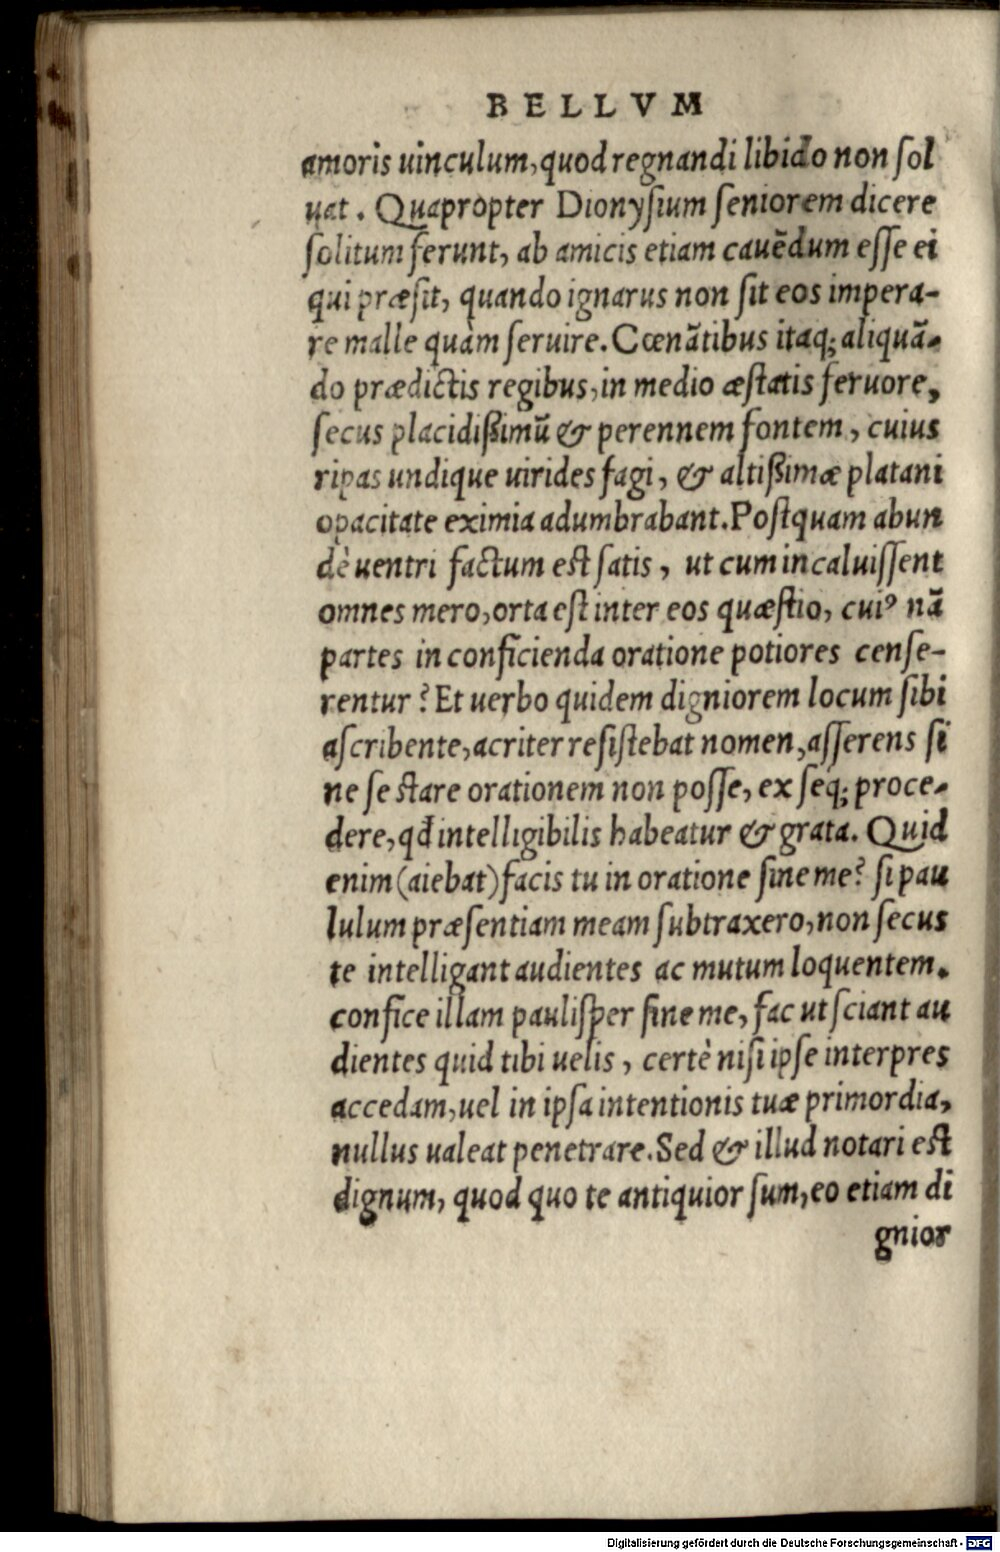 BELLVM
amoris uinculum, quod regnandi libido non ſol
uat. Quapropter Dionyſium ſeniorem dicere
ſolitum ferunt, ab amicis etiam cauẽdum eſſe ei
qui præſit, quando ignarus non ſit eos impera-
re malle quàm ſeruire. Cœnãtibus itaq; aliquã-
do prædictis regibus, in medio æſtatis feruore,
ſecus placidißimũ & perennem fontem, cuius
ripas undique uirides fagi, & altißimæ platani
opacitate eximia adumbrabant. Poſtquam abun
dè uentri factum eſt ſatis, ut cum incaluiſſent
omnes mero, orta eſt inter eos quæſtio, cuiꝰ nã
partes in conficienda oratione potiores cenſe-
rentur? Et uerbo quidem digniorem locum ſibi
aſcribente, acriter reſiſtebat nomen, aſſerens ſi
ne ſe ſtare orationem non poſſe, ex ſeq; proce-
dere, qđ intelligibilis habeatur & grata. Quid
enim (aiebat) facis tu in oratione ſine me? ſi pau
lulum præſentiam meam ſubtraxero, non ſecus
te intelligant audientes ac mutum loquentem.
confice illam pauliſper ſine me, fac ut ſciant au
dientes quid tibi uelis, certè niſi ipſe interpres
accedam, uel in ipſa intentionis tuæ primordia,
nullus ualeat penetrare. Sed & illud notari eſt
dignum, quod quo te antiquior ſum, eo etiam di
gnior
Digitalisierung gefördert durch die Deutsche Forschungsgemeinschaft - DFG